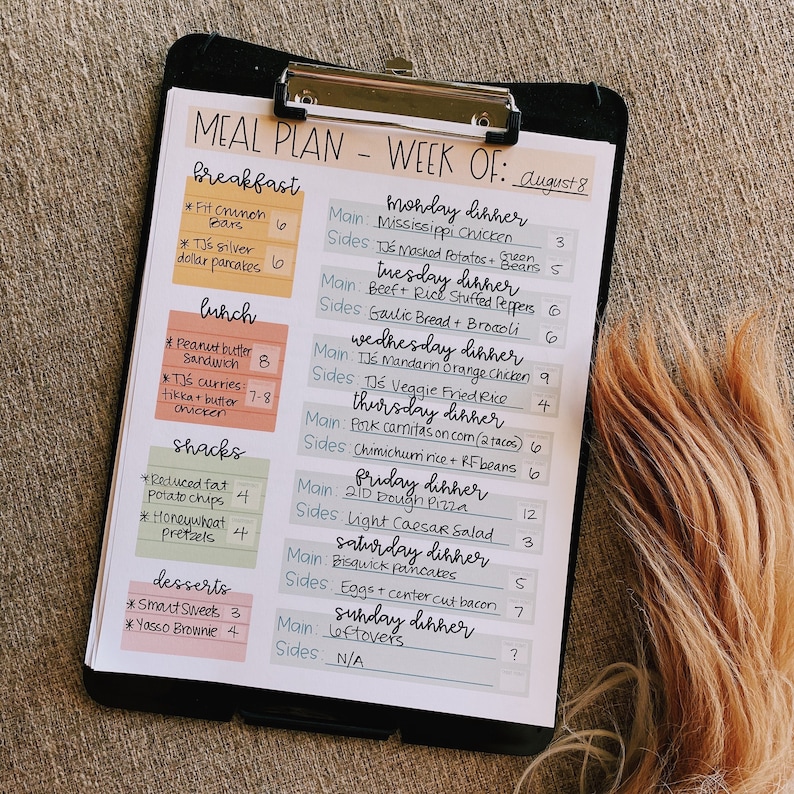 MEAL PLAN - WEEK OF: august 8
breakfast
* Fit crunch Bars 6
* TJ's silver dollar pancakes 6
lunch
* Peanut butter Sandwich 8
* TJ's curries: tikka + butter chicken 7-8
snacks
* Reduced fat potato chips 4
* Honeywheat pretzels 4
desserts
* Smart Sweets 3
* Yasso Brownie 4
monday dinner
Main: Mississippi Chicken 3
Sides: TJ's Mashed Potatoes + Green Beans 5
tuesday dinner
Main: Beef + Rice Stuffed Peppers 6
Sides: Gaulic Bread + Broccoli 6
wednesday dinner
Main: TJ's Mandarin Orange Chicken 9
Sides: TJ's Veggie Fried Rice 4
thursday dinner
Main: Pork carnitas on corn (2 tacos) 6
Sides: Chimichurri rice + RF beans 6
friday dinner
Main: 2ID Dough Pizza 12
Sides: Light Caesar Salad 3
saturday dinner
Main: Bisquick pancakes 5
Sides: Eggs + center cut bacon 7
sunday dinner
Main: Leftovers ?
Sides: N/A